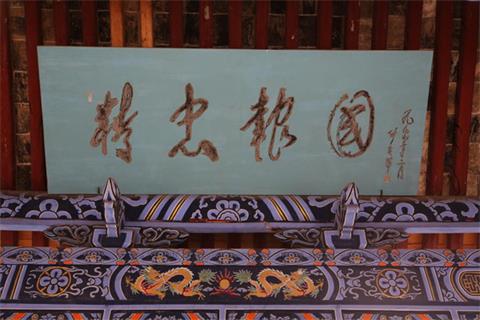 精忠報國